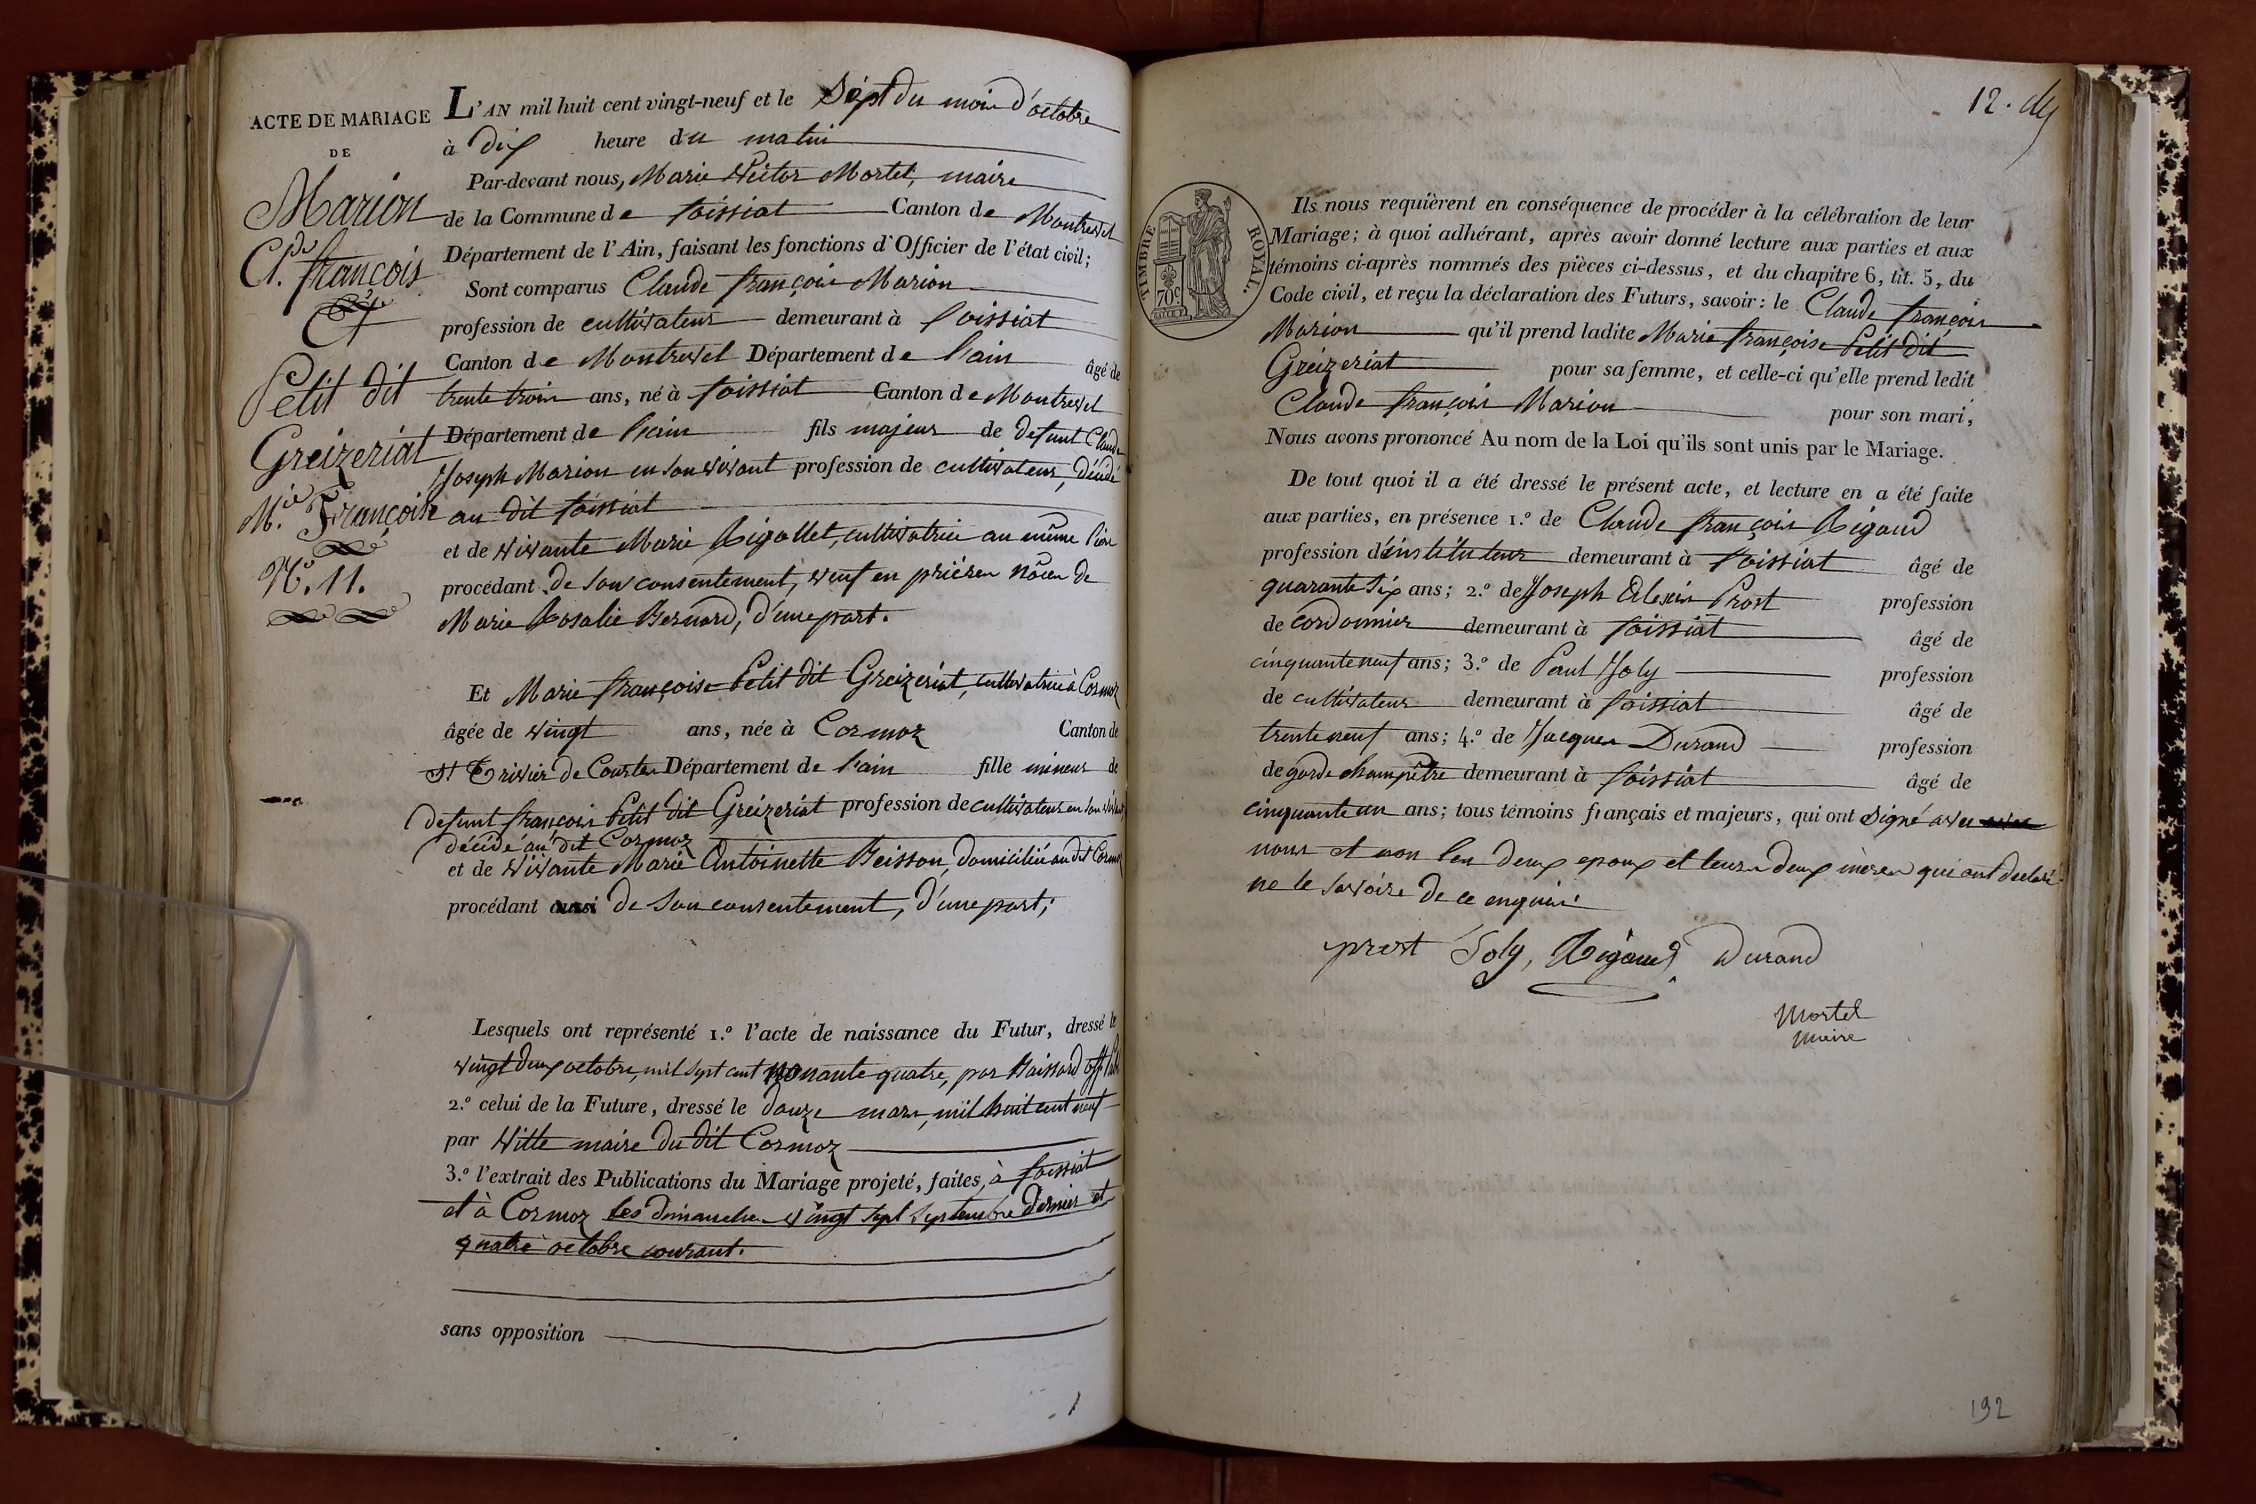 ACTE DE MARIAGE
DE
Marion
Cl.de françois
&
Petit dit
Greizeriat
M.ie Françoise
N.º 11.
L'AN mil huit cent vingt-neuf et le Sept du mois d'octobre
à dix heure du matin
Par-devant nous, Marie Victor Mortel, maire
de la Commune de foissiat Canton de Montrevel
Département de l'Ain, faisant les fonctions d'Officier de l'état civil;
Sont comparus Claude françois Marion
profession de cultivateur demeurant à foissiat
Canton de Montrevel Département de l'ain âgé de
trente trois ans, né à foissiat Canton de Montrevel
Département de l'ain fils majeur de defunt Claude
Joseph Marion en son vivant profession de cultivateur, décédé
au dit foissiat
et de vivante Marie Rigollet, cultivatrice au même lieu
procédant de son consentement, veuf en prières nôces de
Marie Rosalie Bernard, d'une part.
Et Marie françoise Petit dit Greizeriat, cultivatrice à Cormoz
âgée de vingt ans, née à Cormoz Canton de
St Trivier de Courtes Département de l'ain fille mineur de
defunt françois Petit dit Greizeriat profession de cultivateur en son vivant
décédé au dit Cormoz
et de vivante Marie Antoinette Beisson, domiciliée au dit Cormoz
procédant de son consentement, d'une part;
Lesquels ont représenté 1.º l'acte de naissance du Futur, dressé le
vingt deux octobre, mil sept cent nonante quatre, par off. Pub.
2.º celui de la Future, dressé le douze mars, mil huit cent neuf
par Vitte maire du dit Cormoz
3.º l'extrait des Publications du Mariage projeté, faites, à foissiat
et à Cormoz les dimanches vingt sept septembre dernier et
quatre octobre courant.
sans opposition
12. 
TIMBRE ROYAL.
70c.
Ils nous requièrent en conséquence de procéder à la célébration de leur
Mariage; à quoi adhérant, après avoir donné lecture aux parties et aux
témoins ci-après nommés des pièces ci-dessus, et du chapitre 6, tit. 5, du
Code civil, et reçu la déclaration des Futurs, savoir: le Claude françois
Marion qu'il prend ladite Marie françoise Petit dit
Greizeriat pour sa femme, et celle-ci qu'elle prend ledit
Claude françois Marion pour son mari,
Nous avons prononcé Au nom de la Loi qu'ils sont unis par le Mariage.
De tout quoi il a été dressé le présent acte, et lecture en a été faite
aux parties, en présence 1.º de Claude françois Rigaud
profession d'instituteur demeurant à foissiat âgé de
quarante six ans; 2.º de Joseph Alexis Prost profession
de cordonnier demeurant à foissiat âgé de
cinquante neuf ans; 3.º de Paul Joly profession
de cultivateur demeurant à foissiat âgé de
trente neuf ans; 4.º de Jacques Durand profession
de garde champêtre demeurant à foissiat âgé de
cinquante un ans; tous témoins français et majeurs, qui ont signé avec
nous et non les deux epoux et leurs deux mères qui ont déclaré
ne le savoire de ce enquis.
prost Joly, Rigaud, Durand
Mortel
Maire
192